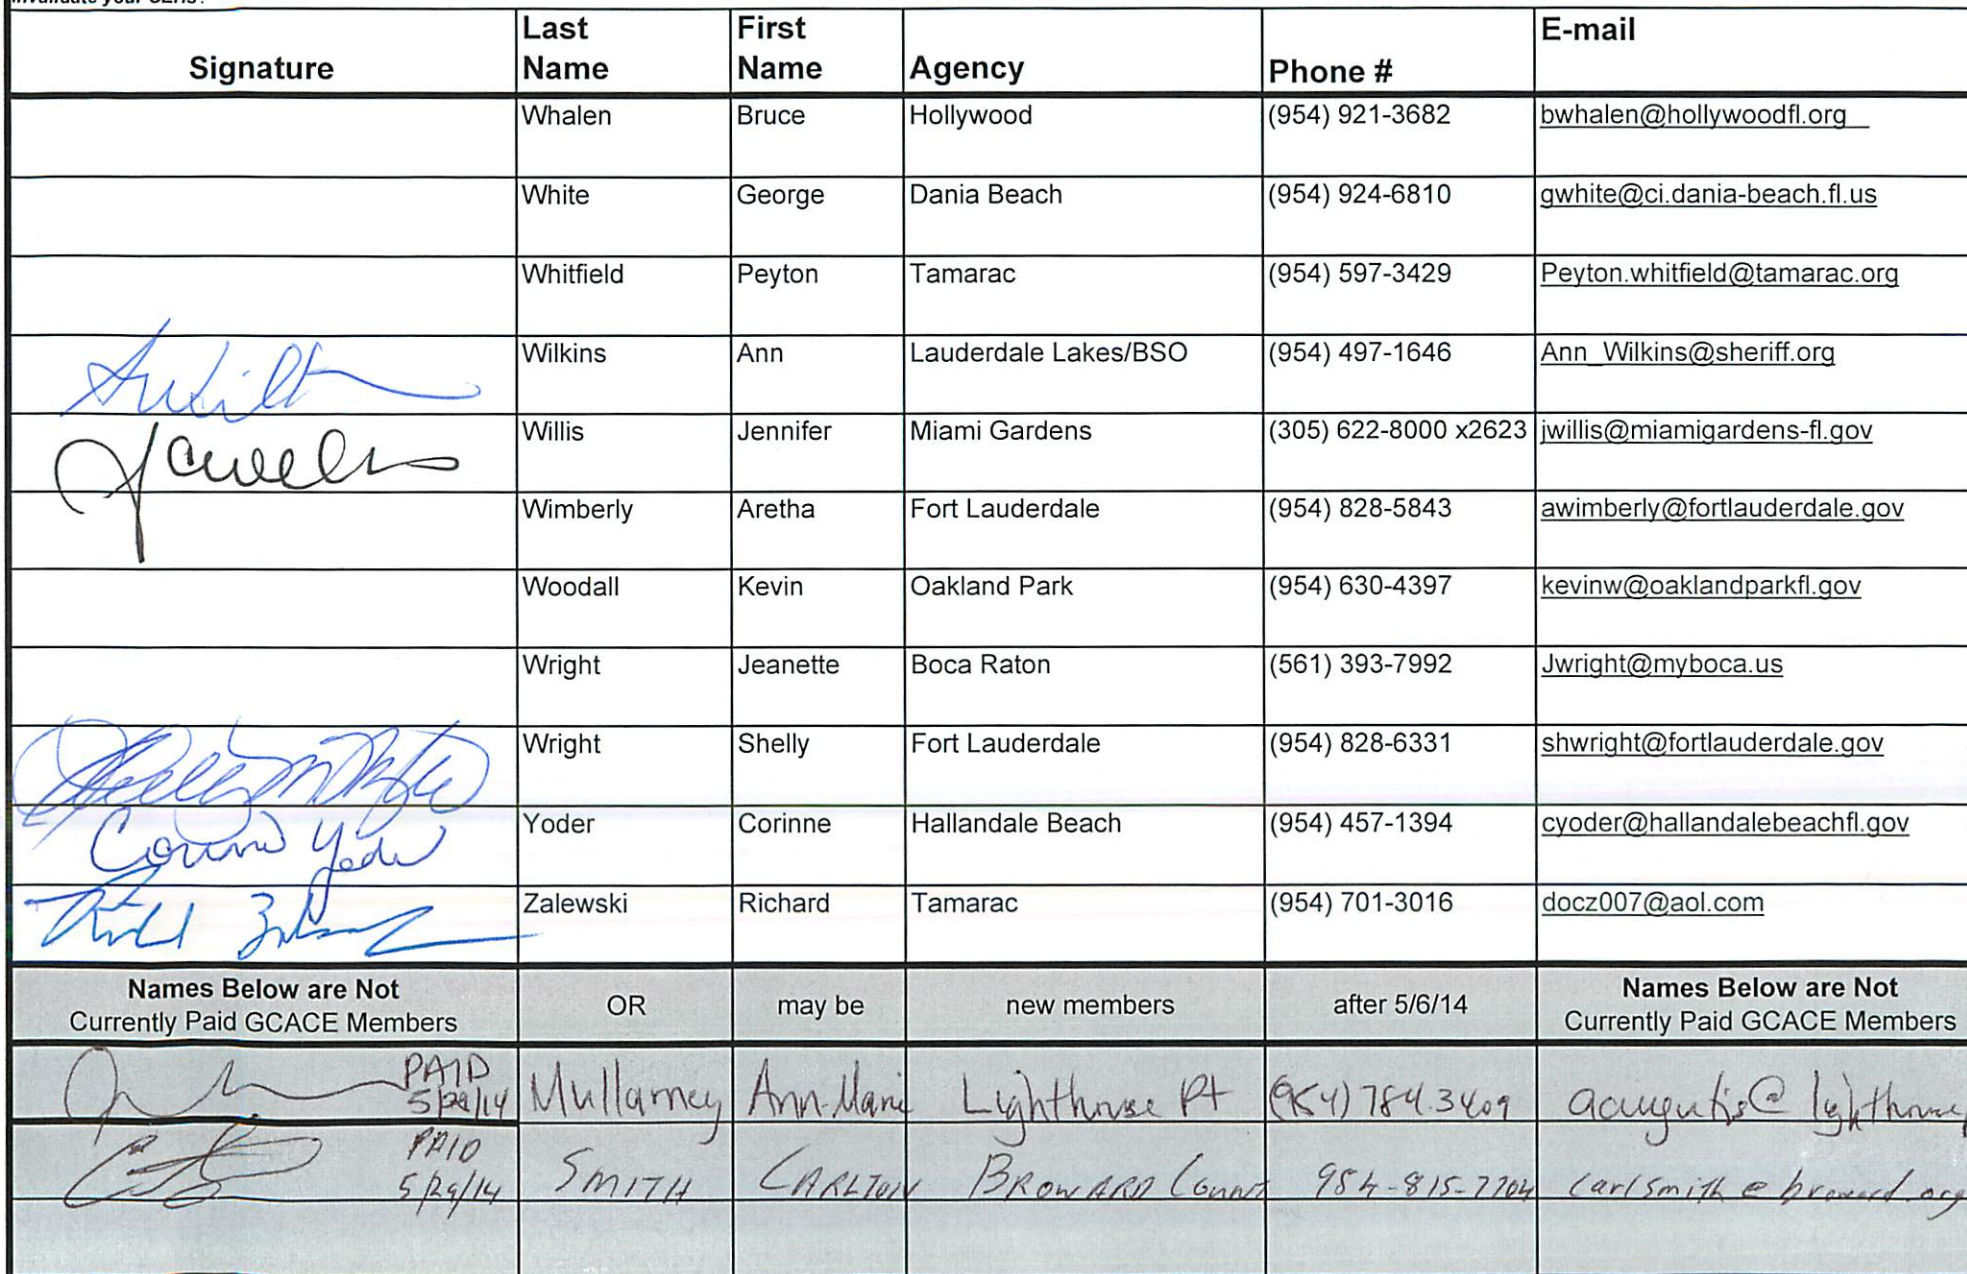 Signature Last Name First Name Agency Phone # E-mail
Whalen Bruce Hollywood (954) 921-3682 bwhalen@hollywoodfl.org
White George Dania Beach (954) 924-6810 gwhite@ci.dania-beach.fl.us
Whitfield Peyton Tamarac (954) 597-3429 Peyton.whitfield@tamarac.org
Wilkins Ann Lauderdale Lakes/BSO (954) 497-1646 Ann_Wilkins@sheriff.org
Willis Jennifer Miami Gardens (305) 622-8000 x2623 jwillis@miamigardens-fl.gov
Wimberly Aretha Fort Lauderdale (954) 828-5843 awimberly@fortlauderdale.gov
Woodall Kevin Oakland Park (954) 630-4397 kevinw@oaklandparkfl.gov
Wright Jeanette Boca Raton (561) 393-7992 Jwright@myboca.us
Wright Shelly Fort Lauderdale (954) 828-6331 shwright@fortlauderdale.gov
Corinne Yoder Yoder Corinne Hallandale Beach (954) 457-1394 cyoder@hallandalebeachfl.gov
Zalewski Richard Tamarac (954) 701-3016 docz007@aol.com
Names Below are Not Currently Paid GCACE Members OR may be new members after 5/6/14 Names Below are Not Currently Paid GCACE Members
PAID 5/29/14 Mullarney Ann-Marie Lighthouse Pt (954) 784.3409
PAID 5/29/14 SMITH CARLTON BROWARD County 954-815-7704 carlsmith@broward.org